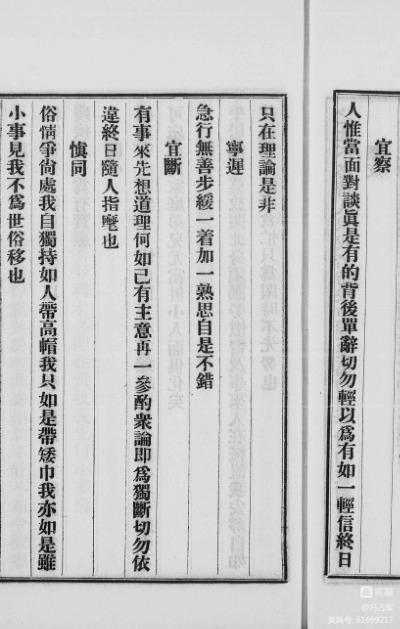 宜察
人惟當面對談眞是有的背後單辭切勿輕以爲有如一輕信終日
只在理論是非
寧遲
急行無善步緩一着加一熟思自是不錯
宜斷
有事來先想道理何如己有主意再一參酌衆論即爲獨斷切勿依
違終日隨人指麾也
愼同
俗情爭尙處我自獨持如人帶高帽我只如是帶矮巾我亦如是雖
小事見我不爲世俗移也
美篇
@冯占军
美篇号: 61699217